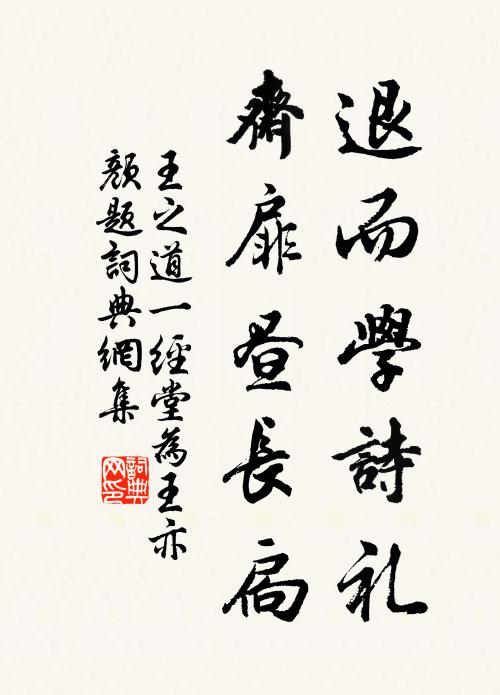 退而學詩礼
齋扉昼長扃
王之道一經堂為王亦
顏題詞典網集
詞典
网印